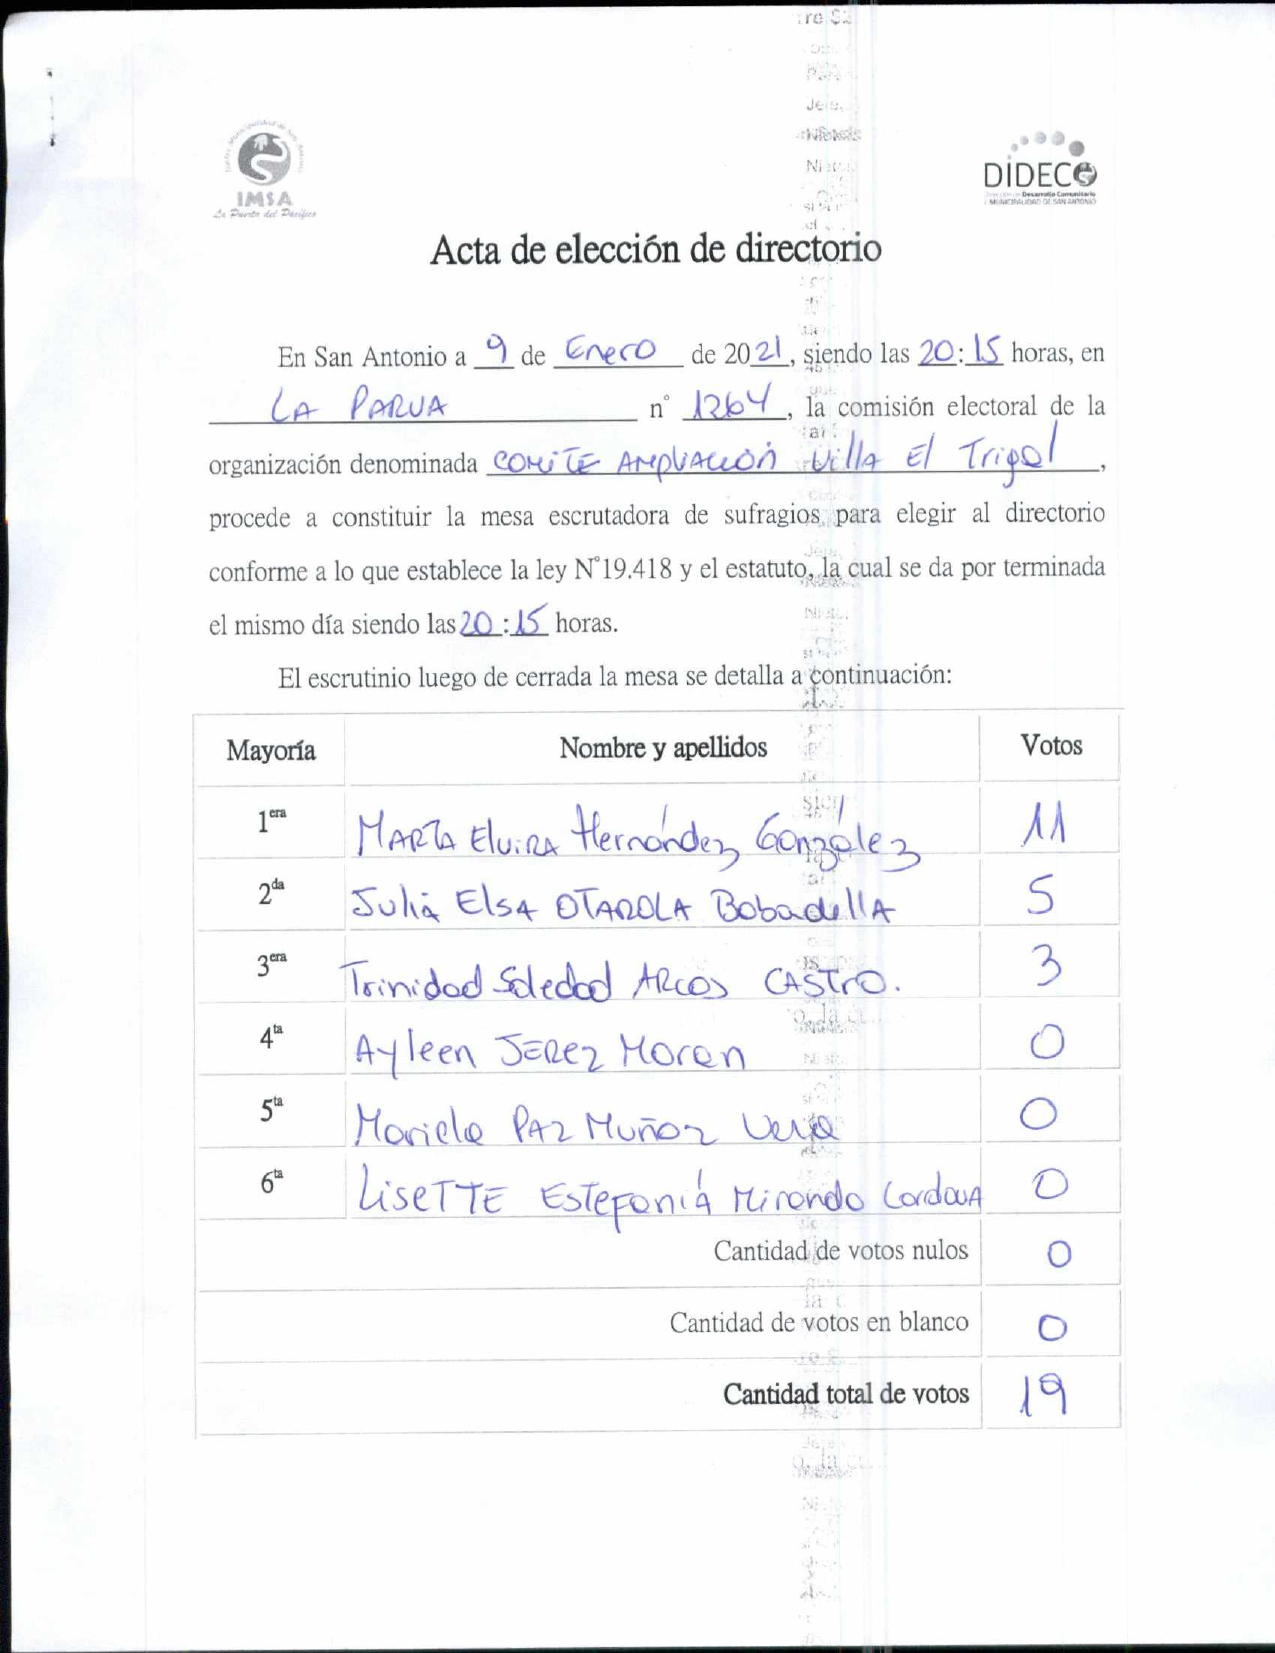 IMSA
La Puerta del Pacífico
DIDECO
Desarrollo Comunitario
MUNICIPALIDAD DE SAN ANTONIO
Acta de elección de directorio
En San Antonio a 9 de Enero de 2021, siendo las 20:15 horas, en
LA PARVA n° 1264, la comisión electoral de la
organización denominada COMITÉ AMPLIACIÓN Villa El Trigal,
procede a constituir la mesa escrutadora de sufragios para elegir al directorio
conforme a lo que establece la ley N°19.418 y el estatuto, la cual se da por terminada
el mismo día siendo las 20:15 horas.
El escrutinio luego de cerrada la mesa se detalla a continuación:
Mayoría Nombre y apellidos Votos
1era MARTA ElviRA Hernández González 11
2da Julia ElsA OTAROLA BobadellA 5
3era Trinidad Soledad ARCOS CASTRO. 3
4ta Ayleen JEREZ Moran 0
5ta Mariela PAZ Muñoz Vera 0
6ta LiseTTE EsTefaníA Miranda CordovA 0
Cantidad de votos nulos 0
Cantidad de votos en blanco 0
Cantidad total de votos 19